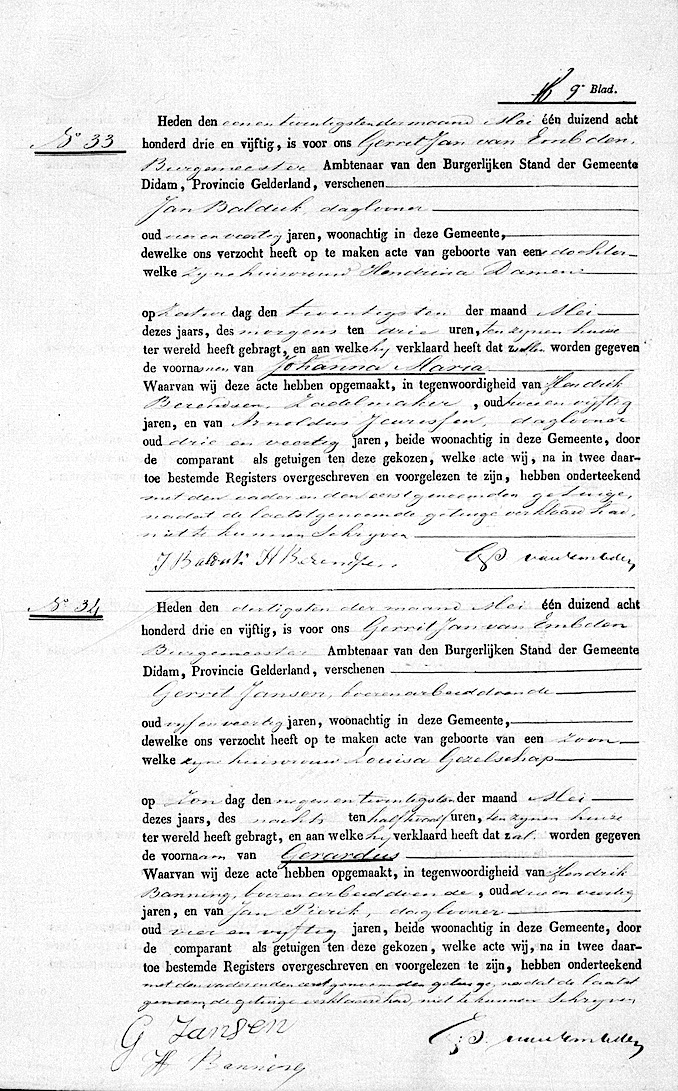 9e Blad.
No 33
Heden den eenentwintigsten der maand Mei één duizend acht
honderd drie en vijftig, is voor ons Gerrit Jan van Embden,
Burgemeester Ambtenaar van den Burgerlijken Stand der Gemeente
Didam, Provincie Gelderland, verschenen
Jan Balduk, daglooner
oud vier en veertig jaren, woonachtig in deze Gemeente,
dewelke ons verzocht heeft op te maken acte van geboorte van een dochter
welke zijne huisvrouw Hendrina Damen
op Zatur dag den twintigsten der maand Mei
dezes jaars, des morgens ten drie uren, ten zijnen huize
ter wereld heeft gebragt, en aan welke hij verklaard heeft dat zullen worden gegeven
de voornamen van Johanna Maria
Waarvan wij deze acte hebben opgemaakt, in tegenwoordigheid van Hendrik
Berendsen, Zadelmaker, oud twee en vijftig
jaren, en van Arnoldus Jeurissen, daglooner
oud drie en veertig jaren, beide woonachtig in deze Gemeente, door
de comparant als getuigen ten deze gekozen, welke acte wij, na in twee daar-
toe bestemde Registers overgeschreven en voorgelezen te zijn, hebben onderteekend
met den vader en den eerstgenoemden getuige,
nadat de laatstgenoemde getuige verklaard had,
niet te kunnen schrijven
J Balduk H Berendsen van Embden
No 34
Heden den dertigsten der maand Mei één duizend acht
honderd drie en vijftig, is voor ons Gerrit Jan van Embden
Burgemeester Ambtenaar van den Burgerlijken Stand der Gemeente
Didam, Provincie Gelderland, verschenen
Gerrit Jansen, boerenarbeid doende
oud vijf en veertig jaren, woonachtig in deze Gemeente,
dewelke ons verzocht heeft op te maken acte van geboorte van een zoon
welke zijne huisvrouw Louisa Gezelschap
op Zon dag den negen en twintigsten der maand Mei
dezes jaars, des nachts ten half twaalf uren, ten zijnen huize
ter wereld heeft gebragt, en aan welke hij verklaard heeft dat zal worden gegeven
de voornaam van Gerardus
Waarvan wij deze acte hebben opgemaakt, in tegenwoordigheid van Hendrik
Banning, boerenarbeid doende, oud drie en veertig
jaren, en van Jan Pierik, daglooner
oud vier en vijftig jaren, beide woonachtig in deze Gemeente, door
de comparant als getuigen ten deze gekozen, welke acte wij, na in twee daar-
toe bestemde Registers overgeschreven en voorgelezen te zijn, hebben onderteekend
met den vader en den eerstgenoemden getuige, nadat de laatst
genoemde getuige verklaard had, niet te kunnen schrijven
G Jansen van Embden
H Banning